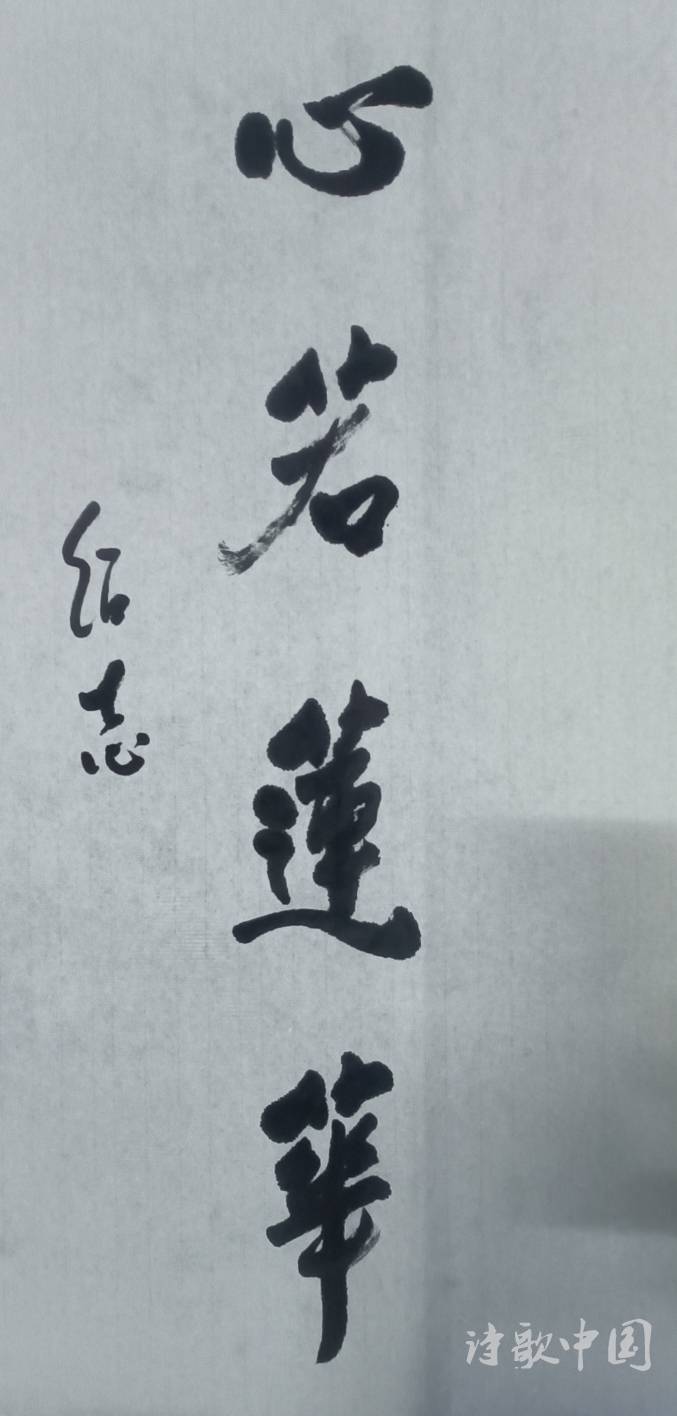 心若蓮華
紹志
诗歌中国